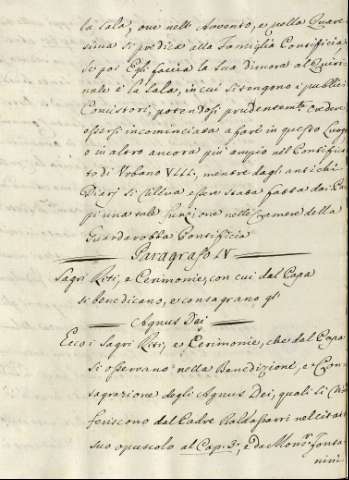 la Sala, ove nell' Avvento, e nella Quare
sima si predica alla Famiglia Pontificia.
Se poi Egli faccia la sua dimora al Quiri
nale è la Sala, in cui si tengono i publici
Concistori; potendosi prudentem.te credere
essersi incominciata a fare in questo Luogo
o in altro ancora più ampio nel Pontifica
to di Urbano VIII, mentre dagli antichi
Diarj si rileva essere stata fatta dai Pa
pi una tale funzione nelle Camere della
Guardarobba Pontificia
Paragrafo IV
Sagri Riti, e Cerimonie, con cui dal Papa
si benedicano, e consagrano gl'
Agnus Dei
Ecco i Sagri Riti, e Cerimonie, che dal Papa
si osservano nella Benedizione, e Con
sagrazione degli Agnus Dei, quali si
feriscono dal Padre Baldassarri nel citato
suo opuscolo al Cap. 3, e da Mons.r Fonta
nini